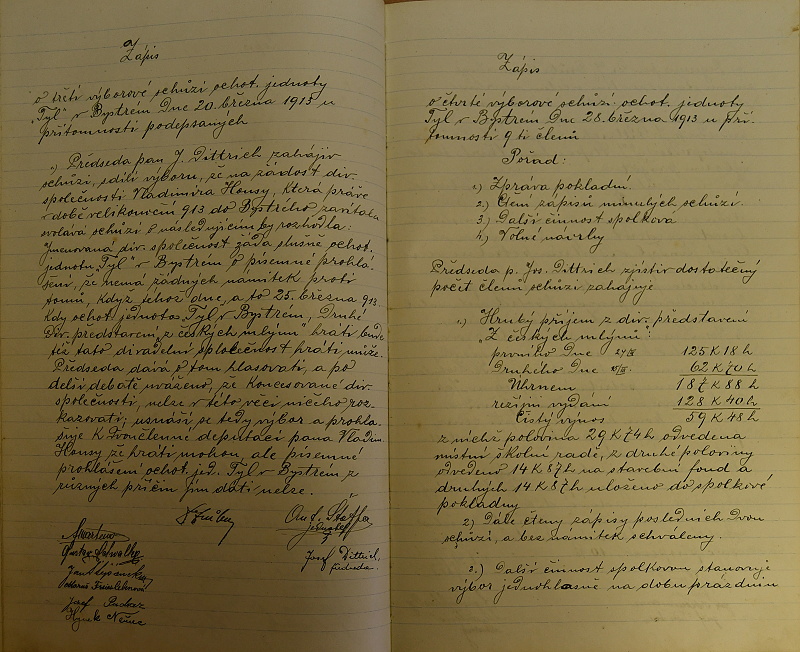 Zápis
o třetí výborové schůzi ochot. jednoty
„Tyl“ v Bystrém Dne 20. března 1913 u
přítomnosti podepsaných
1.) Předseda pan J. Dittrich zahájiv
schůzi, sdílí výboru, že na žádost div.
společnosti Vladimíra Housy, která právě
v době velikonoční 913 do Bystrého zavítala
svolává schůzi o následujícím by rozhodla:
Jmenovaná div. společnost žádá slušně ochot.
jednotu „Tyl“ v Bystrém o písemné prohlá-
šení, že nemá žádných námitek proti
tomu, když téhož dne, a to 25. března 913
kdy ochot. jednota „Tyl v Bystrém, Druhé
Div. představení „z českých mlýnů“ hráti bude
též tato divadelní společnost hráti může.
Předseda dává o tom hlasovati, a po
delší debatě uváženo, že koncesované div.
společnosti, nelze v této věci ničeho roz-
kazovati, usnáší se tedy výbor a prohla-
šuje k dvoučlenné deputaci pana Vladim.
Housy že hráti mohou, ale písemné
prohlášení ochot. jed. Tyl v Bystrém z
různých příčin jim dáti nelze.
Ant. Štaffa
jednatel
Josef Dittrich
předseda.
Josef
Hynek Němec
Zápis
o čtvrté výborové schůzi ochot. jednoty
Tyl v Bystrém Dne 28. března 1913 u pří-
tomnosti 9 ti členů
Pořad:
1.) Zpráva pokladní.
2.) Čtení zápisů minulých schůzí.
3.) Další činnost spolková
4.) Volné návrhy
Předseda p. Jos. Dittrich zjistiv dostatečný
počet členů schůzi zahajuje
1.) Hrubý příjem z div. představení
„Z českých mlýnů“:
prvního Dne 24/III 125 K 18 h
Druhého Dne 25/III. 62 K 70 h
Úhrnem 187 K 88 h
režijní vydání 128 K 40 h
Čistý výnos 59 K 48 h
z nichž polovina 29 K 74 h odvedena
místní školní radě, z druhé poloviny
odvedeno 14 K 87 h na stavební fond a
druhých 14 K 87 h uloženo do spolkové
pokladny
2.) Dále čteny zápisy posledních dvou
schůzí, a bez námitek schváleny.
3.) Další činnost spolkovou stanovuje
výbor jednohlasně na dobu prázdnin